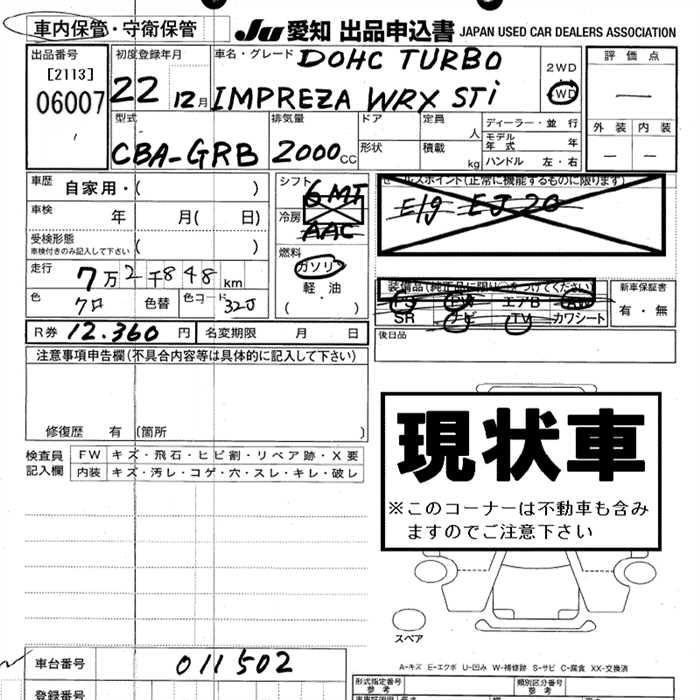 車内保管・守衛保管 JU 愛知 出品申込書 JAPAN USED CAR DEALERS ASSOCIATION
出品番号 初度登録年月 車名・グレード DOHC TURBO 2WD 評価点
[2113] 4WD
06007 22 12月 IMPREZA WRX STi —
型式 排気量 ドア 定員 人 ディーラー・並行 外装 内装
CBA-GRB 2000cc 形状 積載 kg モデル年式 年 — —
ハンドル 左・右
車歴 自家用・( ) シフト 6MT セールスポイント(正常に機能するものに限ります)
車検 年 月( 日) 冷房 AAC E19 EJ20
受検形態 ( )
車検付きのみ記入して下さい
燃料 ガソリン
走行 7万2千848km 軽・油 装備品(純正品に限り○をつけてください) 新車保証書
色 クロ 色替 色コード 32J ( ) PS PW エアB AW 有・無
SR ナビ TV カワシート
R券 12.360円 名変期限 月 日 後日品
注意事項申告欄(不具合内容等は具体的に記入して下さい)
現状車
修復歴 有 (箇所 )
※このコーナーは不動車も含みますのでご注意下さい
検査員記入欄 FW キズ・飛石・ヒビ割・リペア跡・X要
内装 キズ・汚レ・コゲ・穴・スレ・キレ・破レ
スペア
車台番号 011502 A-キズ E-エクボ U-凹み W-補修跡 S-サビ C-腐食 XX-交換済
登録番号 型式指定番号 参考 類別区分番号 参考